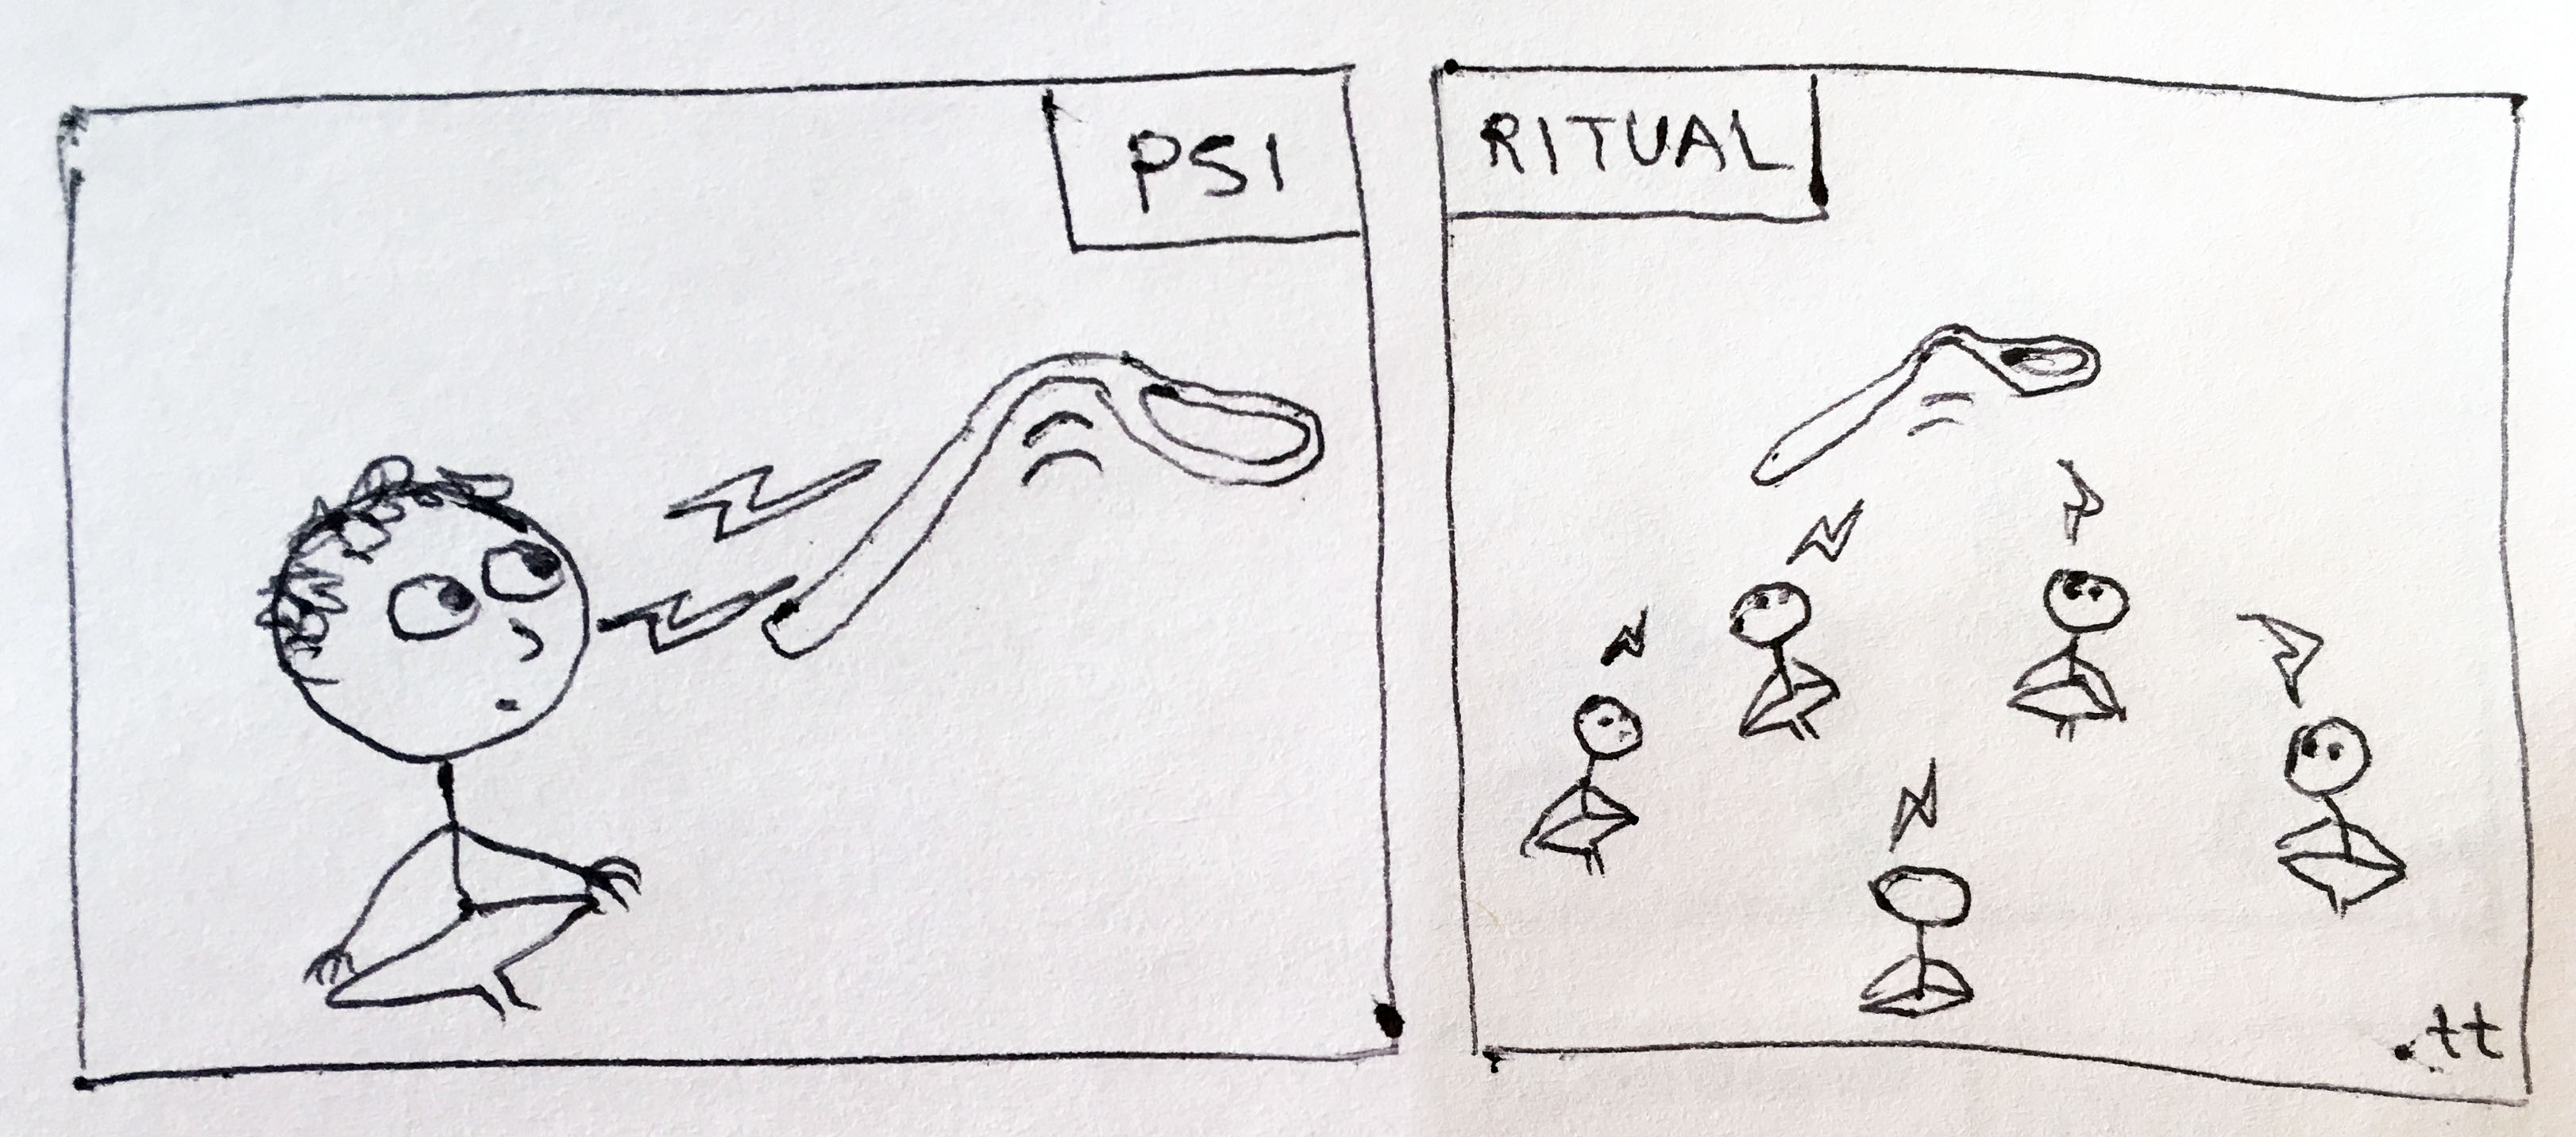 PSI
RITUAL
.tt